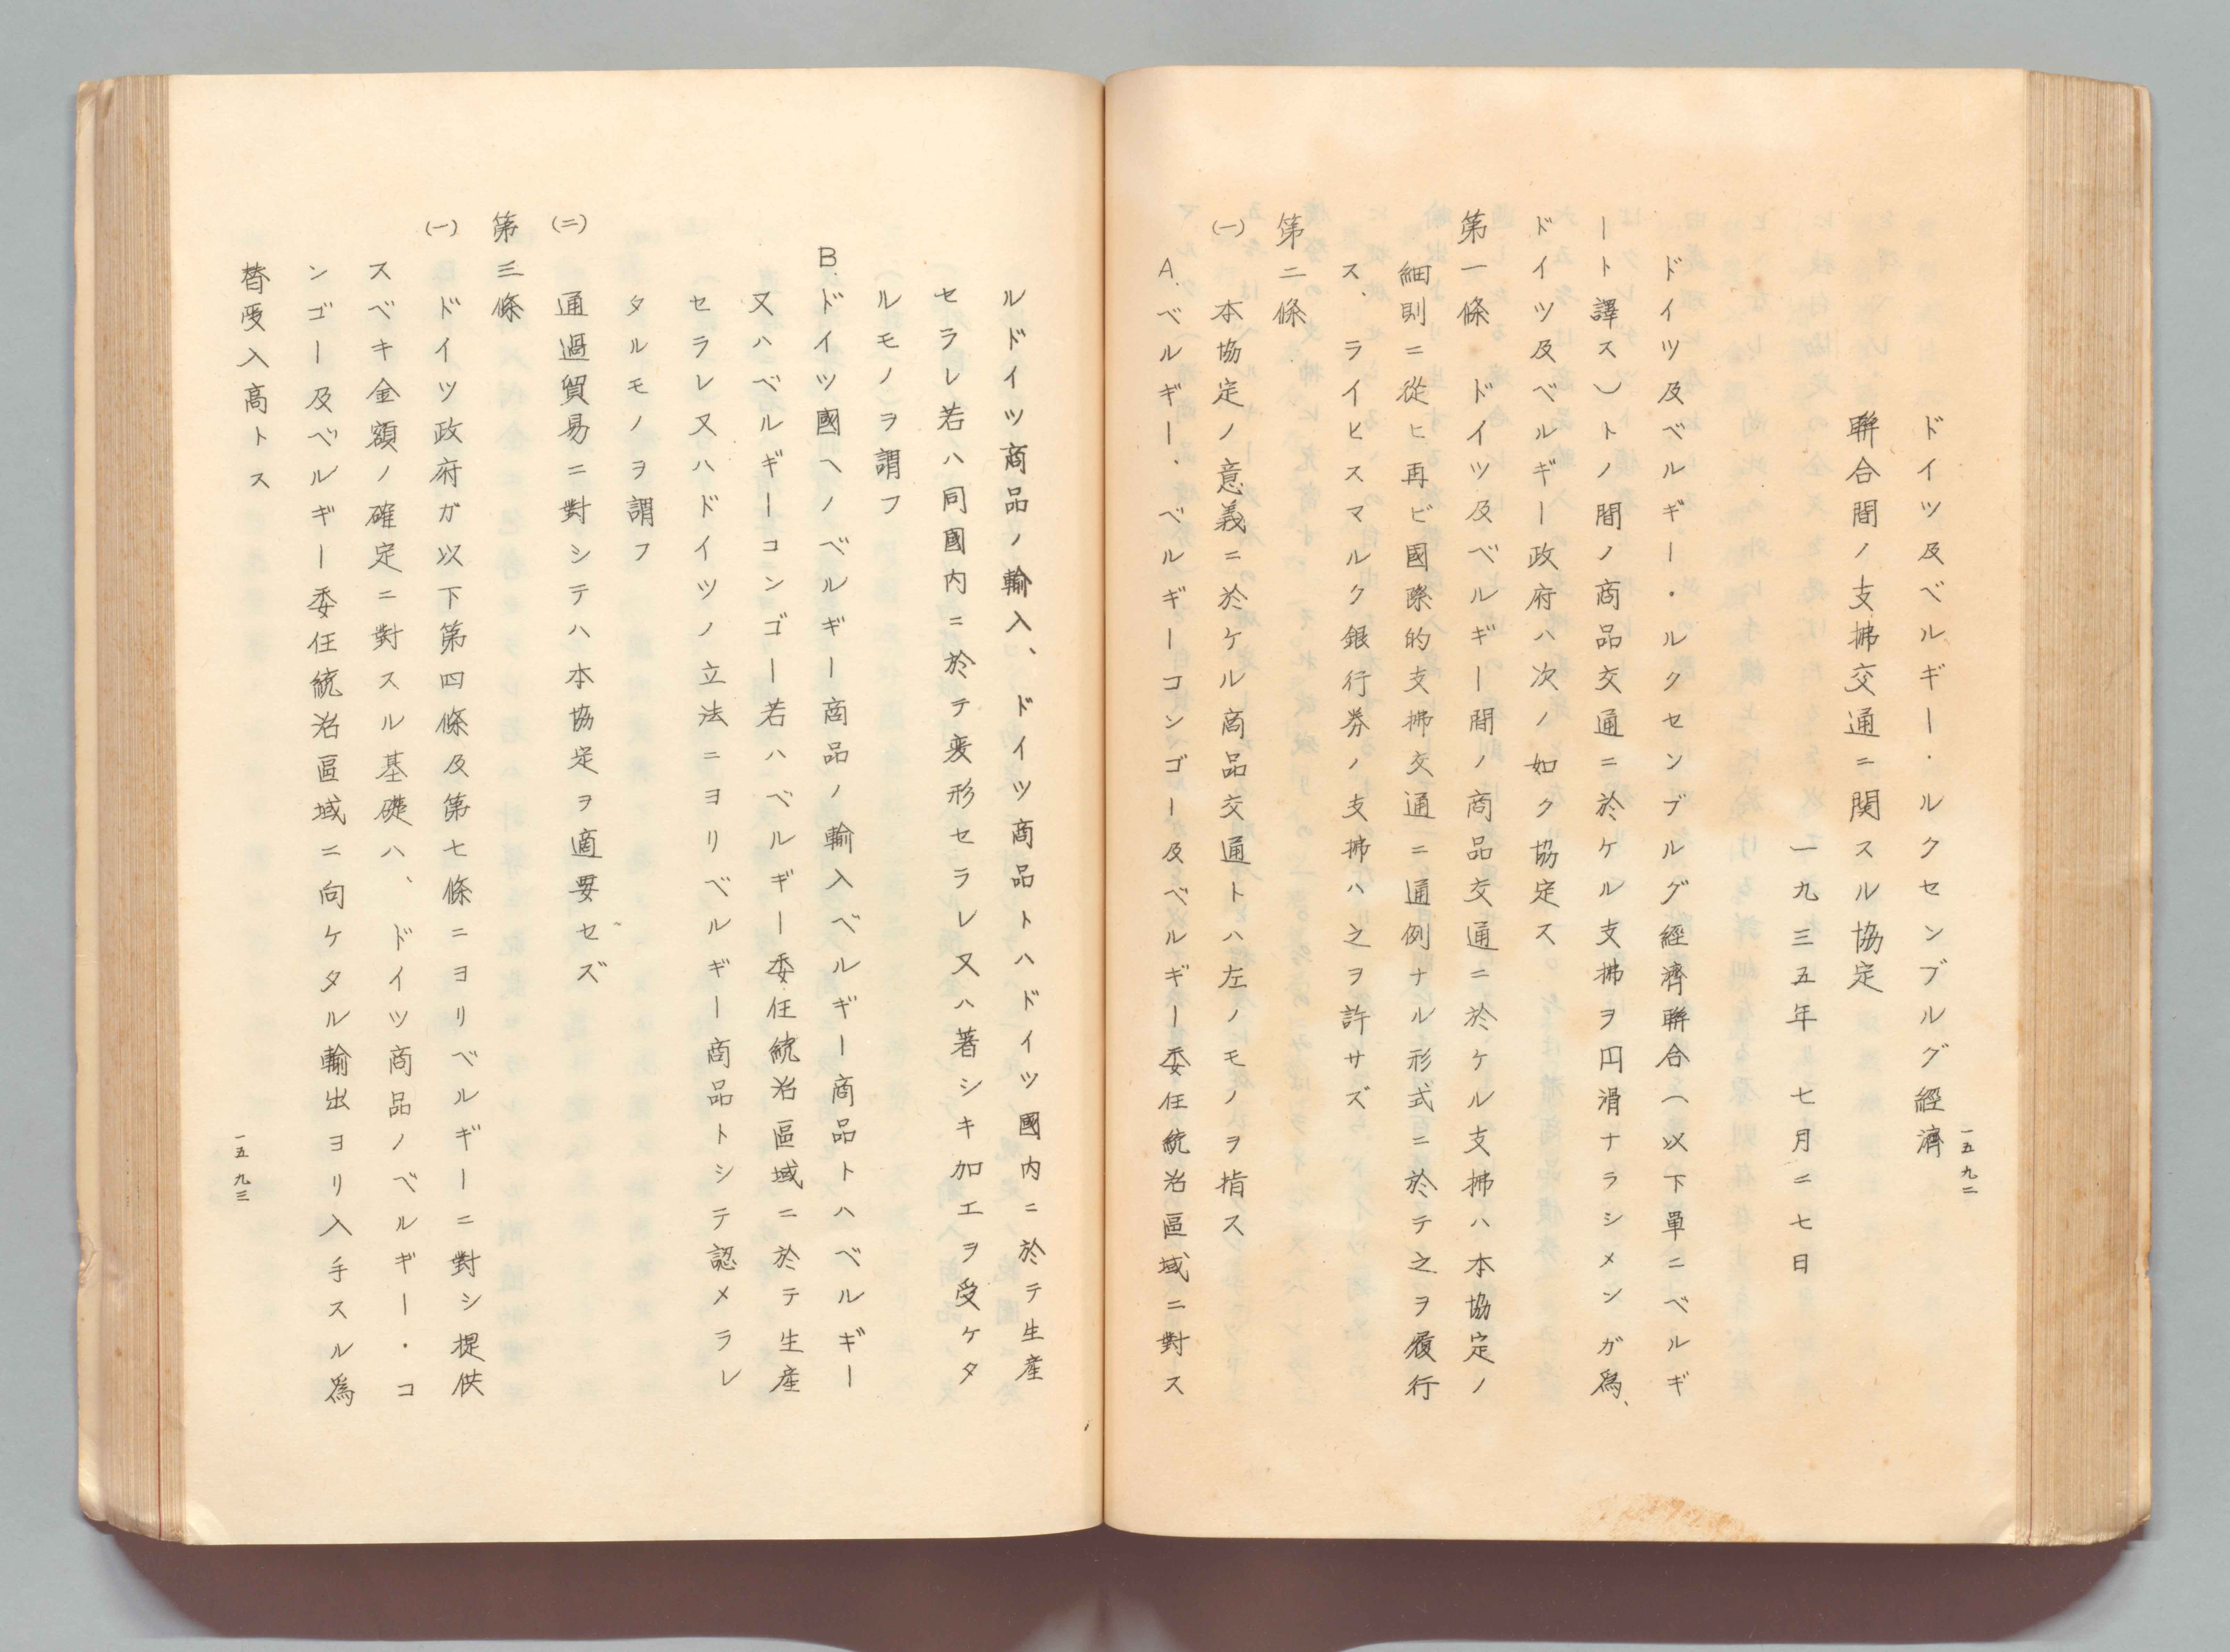 ドイツ及ベルギー・ルクセンブルグ經濟
聯合間ノ支拂交通ニ関スル協定
一九三五年 七月二七日
ドイツ及ベルギー・ルクセンブルグ經濟聯合(以下單ニベルギ
ート譯ス)トノ間ノ商品交通ニ於ケル支拂ヲ円滑ナラシメンガ爲、
ドイツ及ベルギー政府ハ次ノ如ク協定ス
第一條 ドイツ及ベルギー間ノ商品交通ニ於ケル支拂ハ本協定ノ
細則ニ從ヒ再ビ國際的支拂交通ニ通例ナル形式ニ於テ之ヲ履行
ス、ライヒスマルク銀行券ノ支拂ハ之ヲ許サズ
第二條
(一) 本協定ノ意義ニ於ケル商品交通トハ左ノモノヲ指ス
A. ベルギー、ベルギーコンゴー及ベルギー委任統治區域ニ對ス
一五九二
ルドイツ商品ノ輸入、ドイツ商品トハドイツ國内ニ於テ生産
セラレ若ハ同國内ニ於テ変形セラレ又ハ著シキ加工ヲ受ケタ
ルモノヲ謂フ
B. ドイツ國ヘノベルギー商品ノ輸入ベルギー商品トハベルギー
又ハベルギーコンゴー若ハベルギー委任統治區域ニ於テ生産
セラレ又ハドイツノ立法ニヨリベルギー商品トシテ認メラレ
タルモノヲ謂フ
(二) 通過貿易ニ對シテハ本協定ヲ適要セズ
第三條
(一) ドイツ政府ガ以下第四條及第七條ニヨリベルギーニ對シ提供
スベキ金額ノ確定ニ對スル基礎ハ、ドイツ商品ノベルギー・コ
ンゴー及ベルギー委任統治區域ニ向ケタル輸出ヨリ入手スル爲
替受入高トス
一五九三